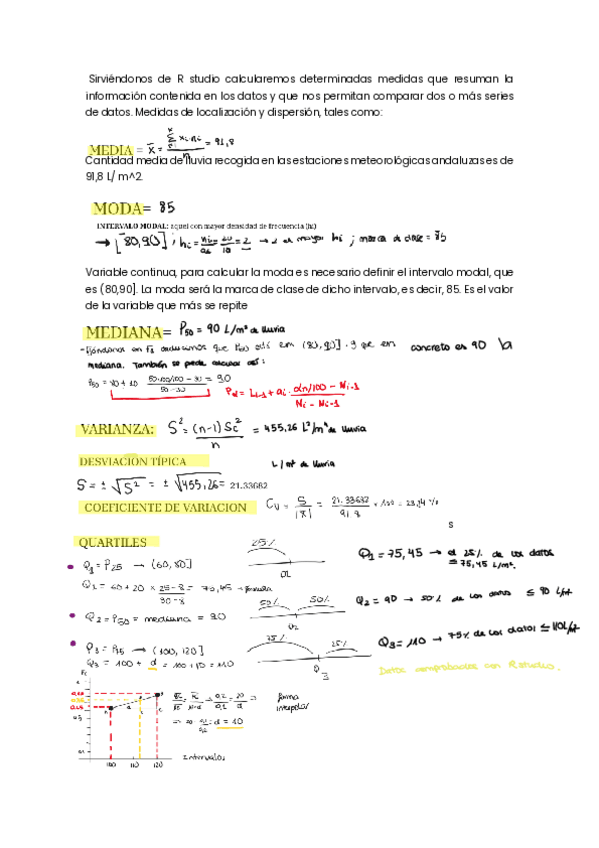 Sirviéndonos de R studio calcularemos determinadas medidas que resuman la
información contenida en los datos y que nos permitan comparar dos o más series
de datos. Medidas de localización y dispersión, tales como:
MEDIA = x̄ = Σ xi·ni / n = 91,8
Cantidad media de lluvia recogida en las estaciones meteorológicas andaluzas es de
91,8 L/ m^2.
MODA= 85
INTERVALO MODAL: aquel con mayor densidad de frecuencia (hi)
→ [80,90]; hi = ni/ai = 20/10 = 2 → el mayor hi ; marca de clase = 85
Variable continua, para calcular la moda es necesario definir el intervalo modal, que
es (80,90]. La moda será la marca de clase de dicho intervalo, es decir, 85. Es el valor
de la variable que más se repite
MEDIANA= P50 = 90 L/m² de lluvia
-Fijándonos en Fi deducimos que P50 está em (80,90] y que en concreto es 90 la
mediana. También se puede calcular así:
P50 = 80 + 10 · 50·100/100 - 30 / 50-30 = 90
Pα = Li-1 + ai · αn/100 - Ni-1 / Ni - Ni-1
VARIANZA: S² = (n-1) Sc² / n = 455,26 L²/m⁴ de lluvia
DESVIACIÓN TÍPICA L/m² de lluvia
S = ± √S² = ± √455,26 = 21.33682
COEFICIENTE DE VARIACION Cv = S / |x̄| = 21.33682 / 91,8 × 100 = 23,24 %
s
QUARTILES
25%
Q1 = P25 → (60,80]
Q1 = 75,45 → el 25% de los datos
≤ 75,45 L/m².
Q1 = 60 + 20 × 25-8 / 30-8 = 75,45 → fórmula
Q1
50% 50%
Q2 = P50 = mediana = 90
Q2 = 90 → 50% de los datos ≤ 90 L/m²
Q2
75% 25%
P3 = P75 → (100,120]
Q3 = 110 → 75% de los datos ≤ 110 L/m²
Q3 = 100 + d = 100 + 10 = 110
Q3
Datos comprobados con Rstudio.
Fi
forma
=> d = 10
100 110 120
Intervalos